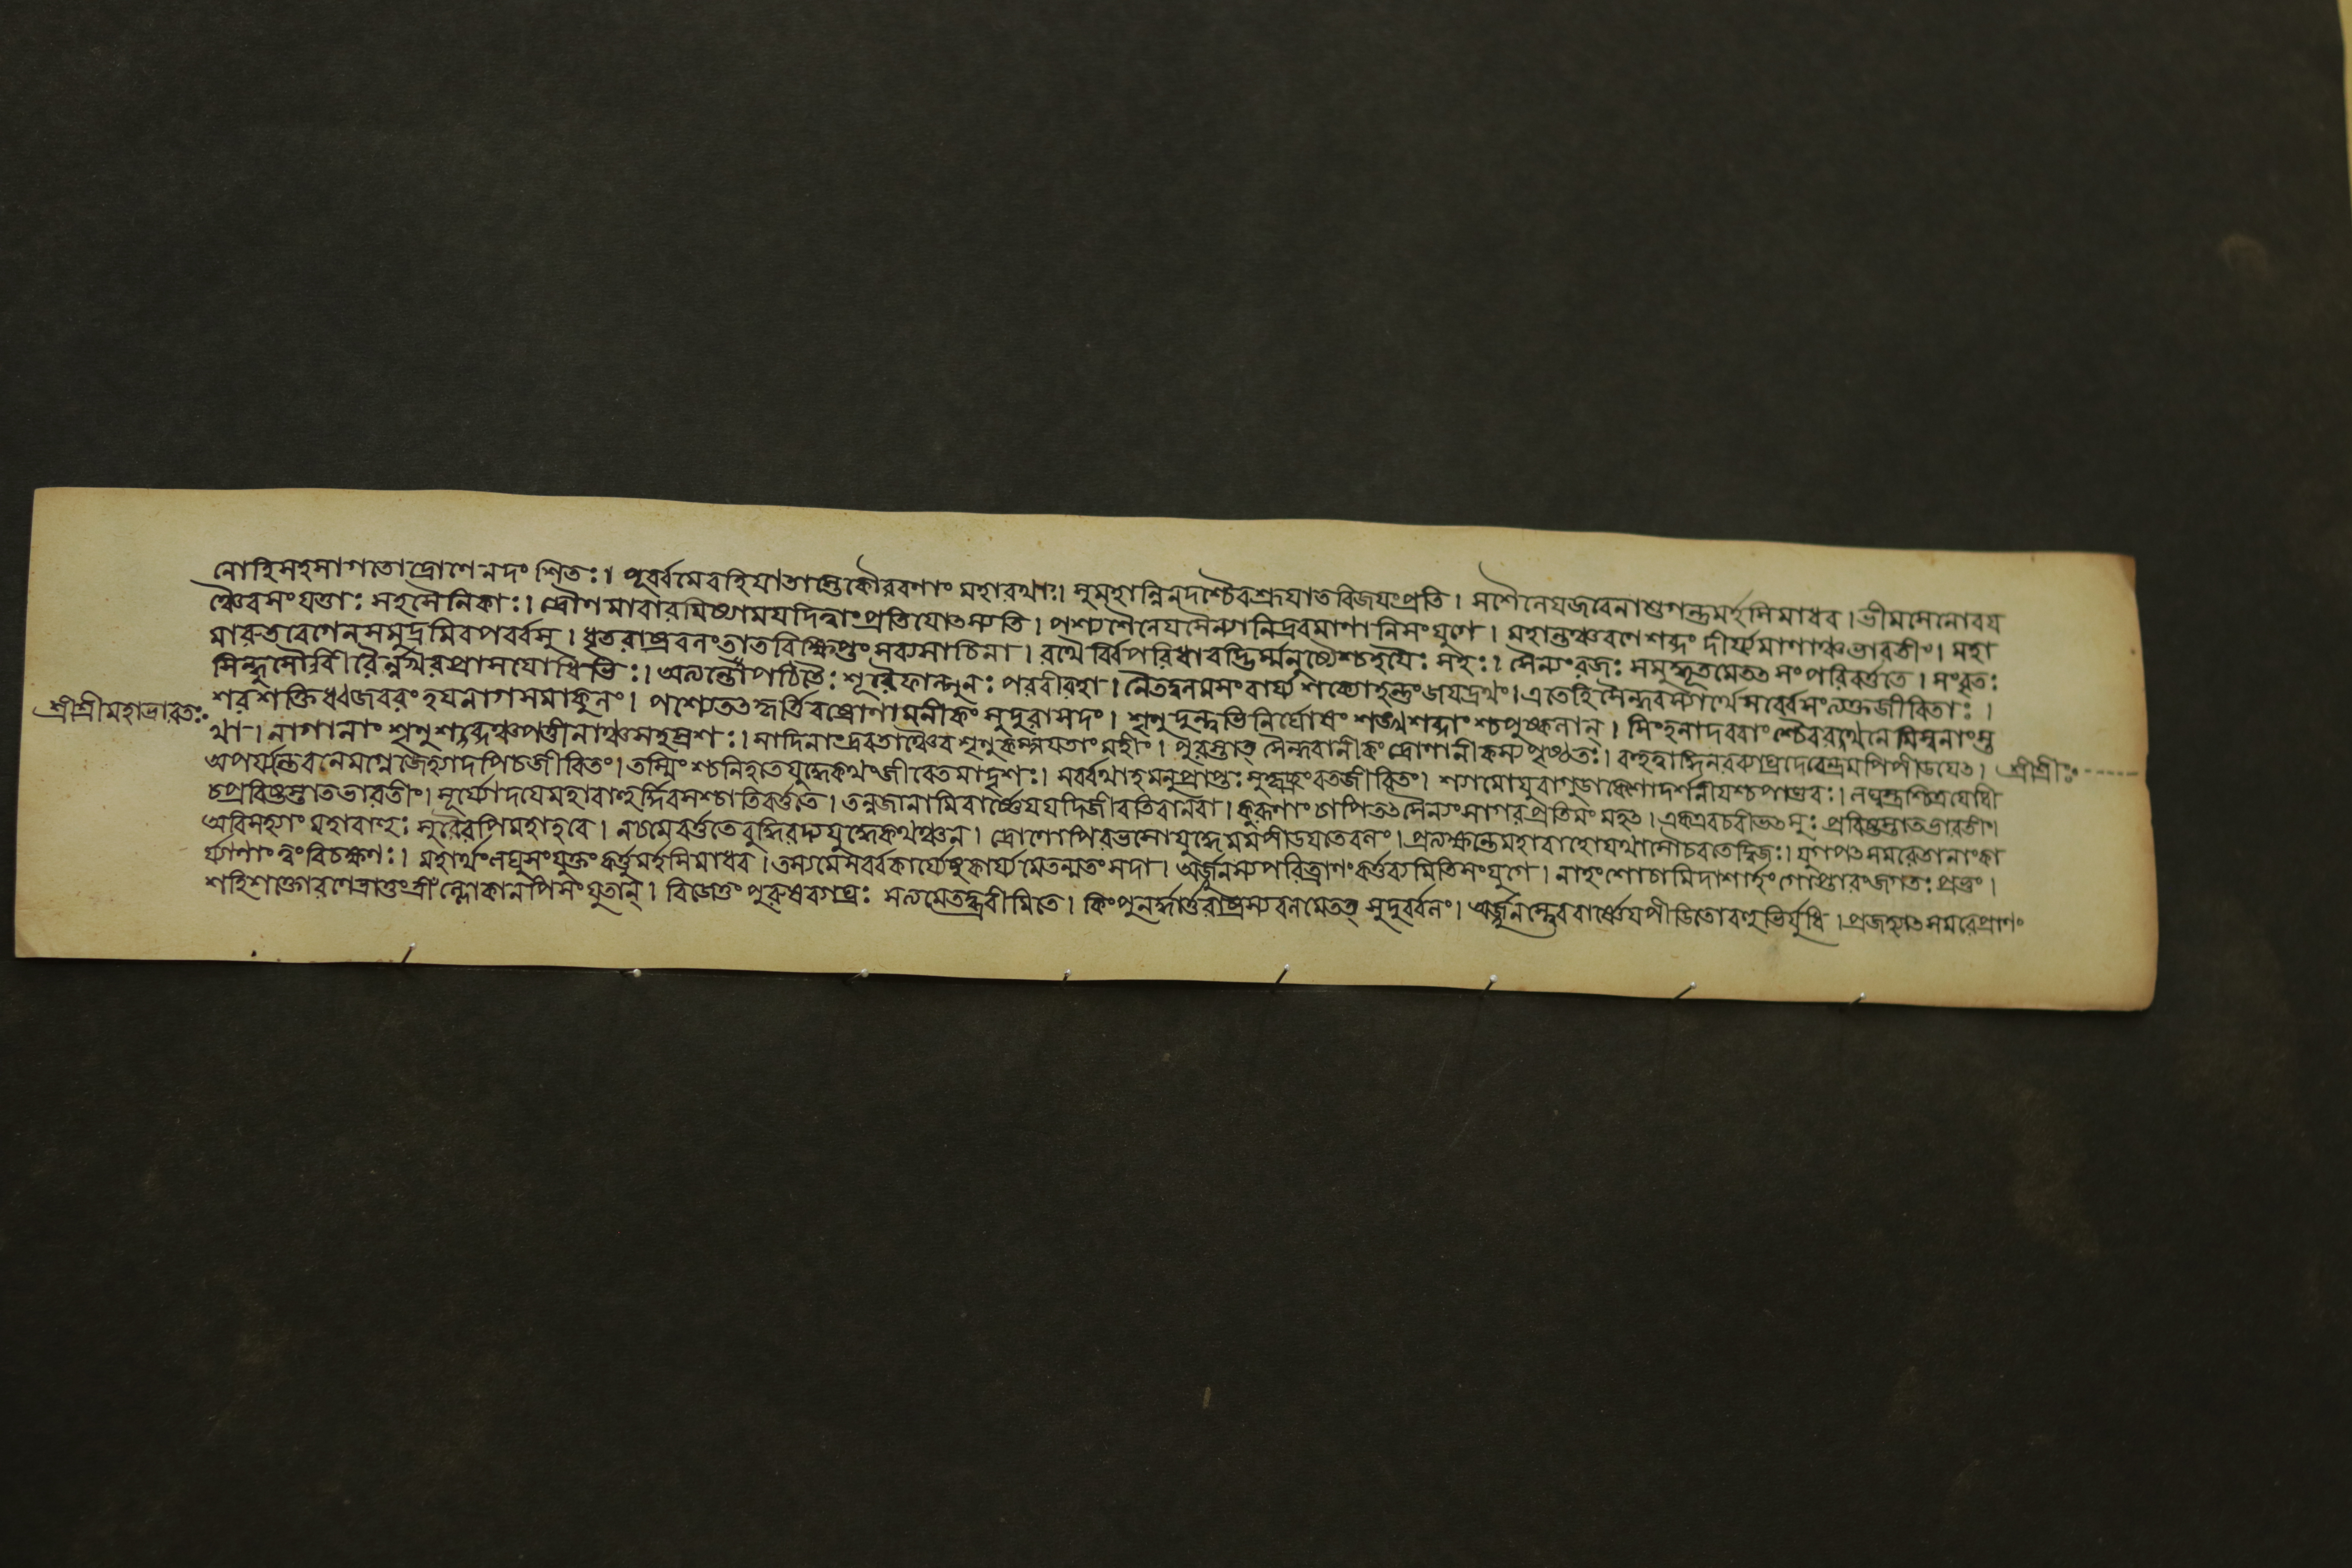 নোহিসহসাগতোদ্রোণেনদংশিতঃ। পূর্ব্বমেবহিযাতাস্তেকৌরবণাং মহারথাঃ। সুমহান্নিনদশ্চৈবশ্রূযাতবিজযংপ্রতি। সশৈনেযজবেনাশুগন্তুমর্হসিমাধব। ভীমসেনোবয
ঞ্চৈবসংযত্তাঃ সহসৈনিকাঃ। দ্রৌণমাবারযিষ্যামযদিত্বাংপ্রতিযোৎস্যতি। পশ্যশৈনেযসৈন্যানিদ্রবমাণানিসংযুগে। মহান্তঞ্চরণেশব্দং দীর্য্যমাণাঞ্চভারতীং। মহা
মারুতবেগেনসমুদ্রমিবপর্ব্বসু। ধৃতরাষ্ট্রবলংতাতবিক্ষিপ্তংসব্যসাচিনা। রথৈর্বিপরিধাবদ্ভির্ম্মনুষ্যৈশ্চহযৈঃ সহঃ। সৈন্যংরজঃ সমুদ্ধূতমেতৎ সংপরিবর্ত্ততে। সংবৃতঃ
সিন্ধুসৌবীরৈর্নখরপ্রাসযোধিভিঃ। অত্যন্তোপচিতৈঃ শূরৈফাল্গুনঃ পরবীরহা। নৈতদ্বলমসংবার্য্য শক্যোহন্তুংজযদ্রথং। এতেহিসৈন্ধবস্যার্থেসর্ব্বেসংত্যক্তজীবিতাঃ।
শ্রীশ্রীমহাভারতঃ
শরশক্তিধ্বজবরং হযনাগসমাকুলং। পশ্যৈতৎদ্ধার্ত্তরাষ্ট্রাণামনীকং সুদুরাসদং। শৃণুদুন্দুভিনির্ঘোষং শঙ্খশব্দাংশ্চপুষ্কলান্। সিংহনাদরবাংশ্চৈবরথনেমিস্বনাংস্ত
থা। নাগানাং শৃণুশব্দঞ্চপত্তীনাঞ্চসহস্রশঃ। সাদিনাংদ্রবতাঞ্চৈবশৃণুকম্পযতাংমহীং। পুরস্তাত্ সৈন্ধবানীকংদ্রোণানীকস্যপৃষ্ঠতঃ। বহুত্বাদ্ধিনরব্যাঘ্রদেবেন্দ্রমপিপীডযেৎ।
শ্রীশ্রীঃ
অপর্য্যন্তেবলেমগ্নেজহ্যাদপিচজীবিতং। তস্মিংশ্চনিহতেযুদ্ধেকথংজীবেতমাদৃশঃ। সর্ব্বথাহমনুপ্রাপ্তঃ সুকৃচ্ছ্রংবতজীবিতং। শ্যামোযুবাগুডাকেশোদর্শনীযশ্চপাণ্ডবঃ। লঘ্বস্ত্রশ্চিত্রযোধী
চপ্রবিষ্টস্তাতভারতীং। সূর্য্যোদযেমহাবাহুর্দ্দিবসশ্চাতিবর্ত্ততে। তন্নজানামিবার্ষ্ণেযযদিজীবতিবানবা। কুরূণাং চাপিতৎসৈন্যংসাগরপ্রতিমং মহৎ। একএবচবীভৎসুঃ প্রবিষ্টস্তাতভারতীং।
অবিসহ্যাং মহাবাহুঃ সুরৈরপিমহাহবে। নচমেবর্ত্ততেবুদ্ধিরদ্যযুদ্ধেকথঞ্চন। দ্রোণোপিরভসোযুদ্ধেমমপীডযতেবলং। প্রত্যক্ষন্তেমহাবাহোযথাসৌচরতেদ্বিজঃ। যুগপৎসমরেতানাংকা
র্য্যাণাংত্বংবিচক্ষণঃ। মহার্থংলঘুসংযুক্তং কর্ত্তুমর্হসিমাধব। তস্যমেসর্ব্বকার্য্যেষুকার্য্যমেতন্মতংসদা। অর্জ্জুনস্যপরিত্রাণংকর্ত্তব্যমিতিসংযুগে। নাহংশোচামিদাশার্হংগোপ্তারংজগতঃ প্রভুং।
শহিশক্তোরণেত্রাতুংত্রীঁল্লোকানপিসংযুতান্। বিজেতুং পুরুষব্যাঘ্রঃ সত্যমেতদ্ব্রবীমিতে। কিংপুনর্দ্ধার্ত্তরাষ্ট্রস্যবলমেতত্ সুদুর্ব্বলং। অর্জ্জুনস্ত্বেববার্ষ্ণেযপীডিতোবহুভির্যুধি। প্রজহ্যাৎসমরেপ্রাণং